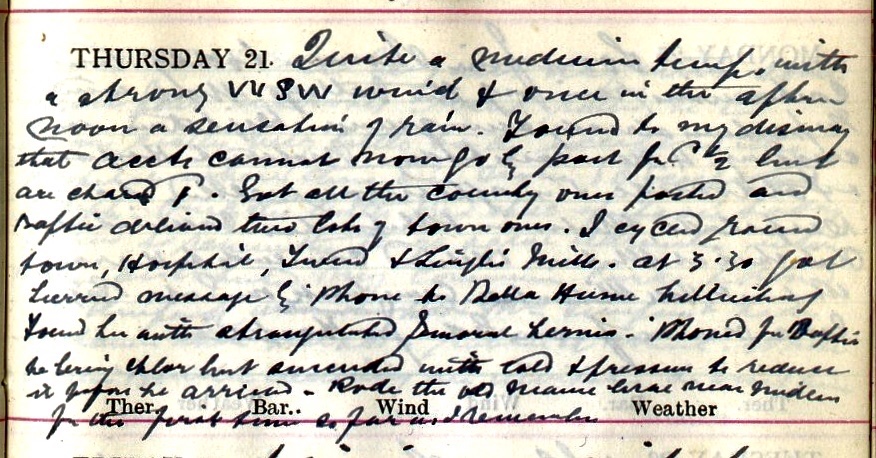 THURSDAY 21. Quite a medium temp. with
a strong WSW wind & once in the after
noon a sensation of rain. Found to my dismay
that accts cannot now go by post for ½ but
are charged 1. Got all the country ones posted and
delivered two lots of town ones. I cycled round
town, Hospital, Tweed & Mills. at 3.30 got
hurried message by 'Phone to Bella Hume
found her with strangulated femoral hernia. 'Phoned for
to bring chlor but succeeded with cold & pressure to reduce
it before he arrived. Rode the old brae near
for the first time so far as I remember
Ther. Bar.. Wind Weather